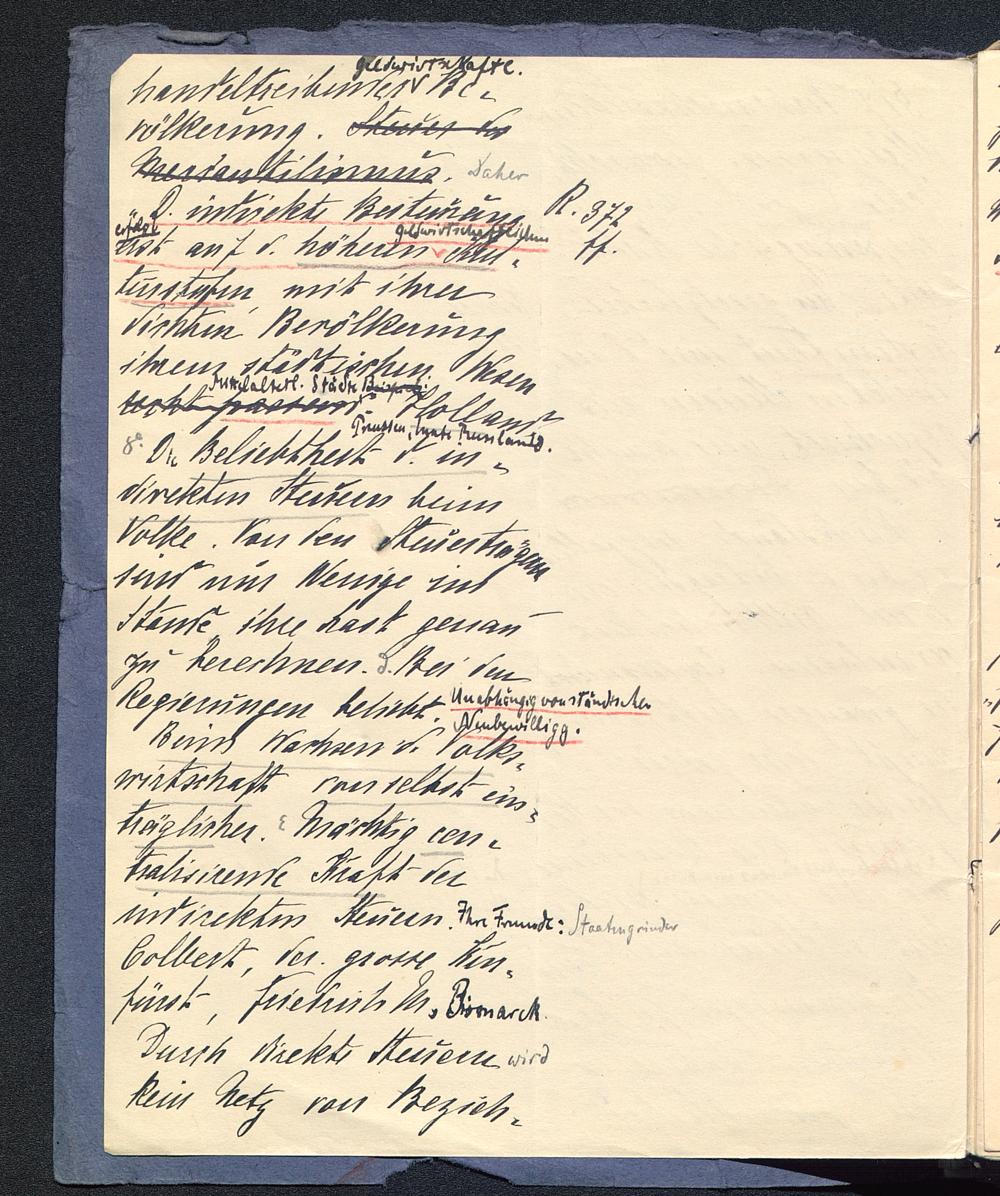 geldwirtschaftl.
handeltreibenden Be-
völkerung. Steuer des
Merkantilismus. Daher
D. indirekte Besteuerung R. 372
erfolgt geldwirtschaftlichen ff.
ist auf d. höheren Kul-
turstufen mit ihrer
dichten Bevölkerung
ihrem städtischen Wesen
Mittelalterl. Städte
recht passend. Holland
Preussen, heute Russland.
Die Beliebtheit d. in-
direkten Steuern beim
Volke. Von den Steuerträgern
sind nur Wenige im
Stande ihre Last genau
zu berechnen. Bei den
Regierungen beliebt. Unabhängig von ständischer
Neubewilligg.
Beim Wachsen d. Volks-
wirtschaft von selbst ein-
träglicher. Mächtig cen-
tralisirende Kraft der
indirekten Steuern. Ihre Freunde: Staatengründer
Colbert, der grosse Kur-
fürst, Friedrich M., Bismarck.
Durch direkte Steuern wird
kein Netz von Bezieh-